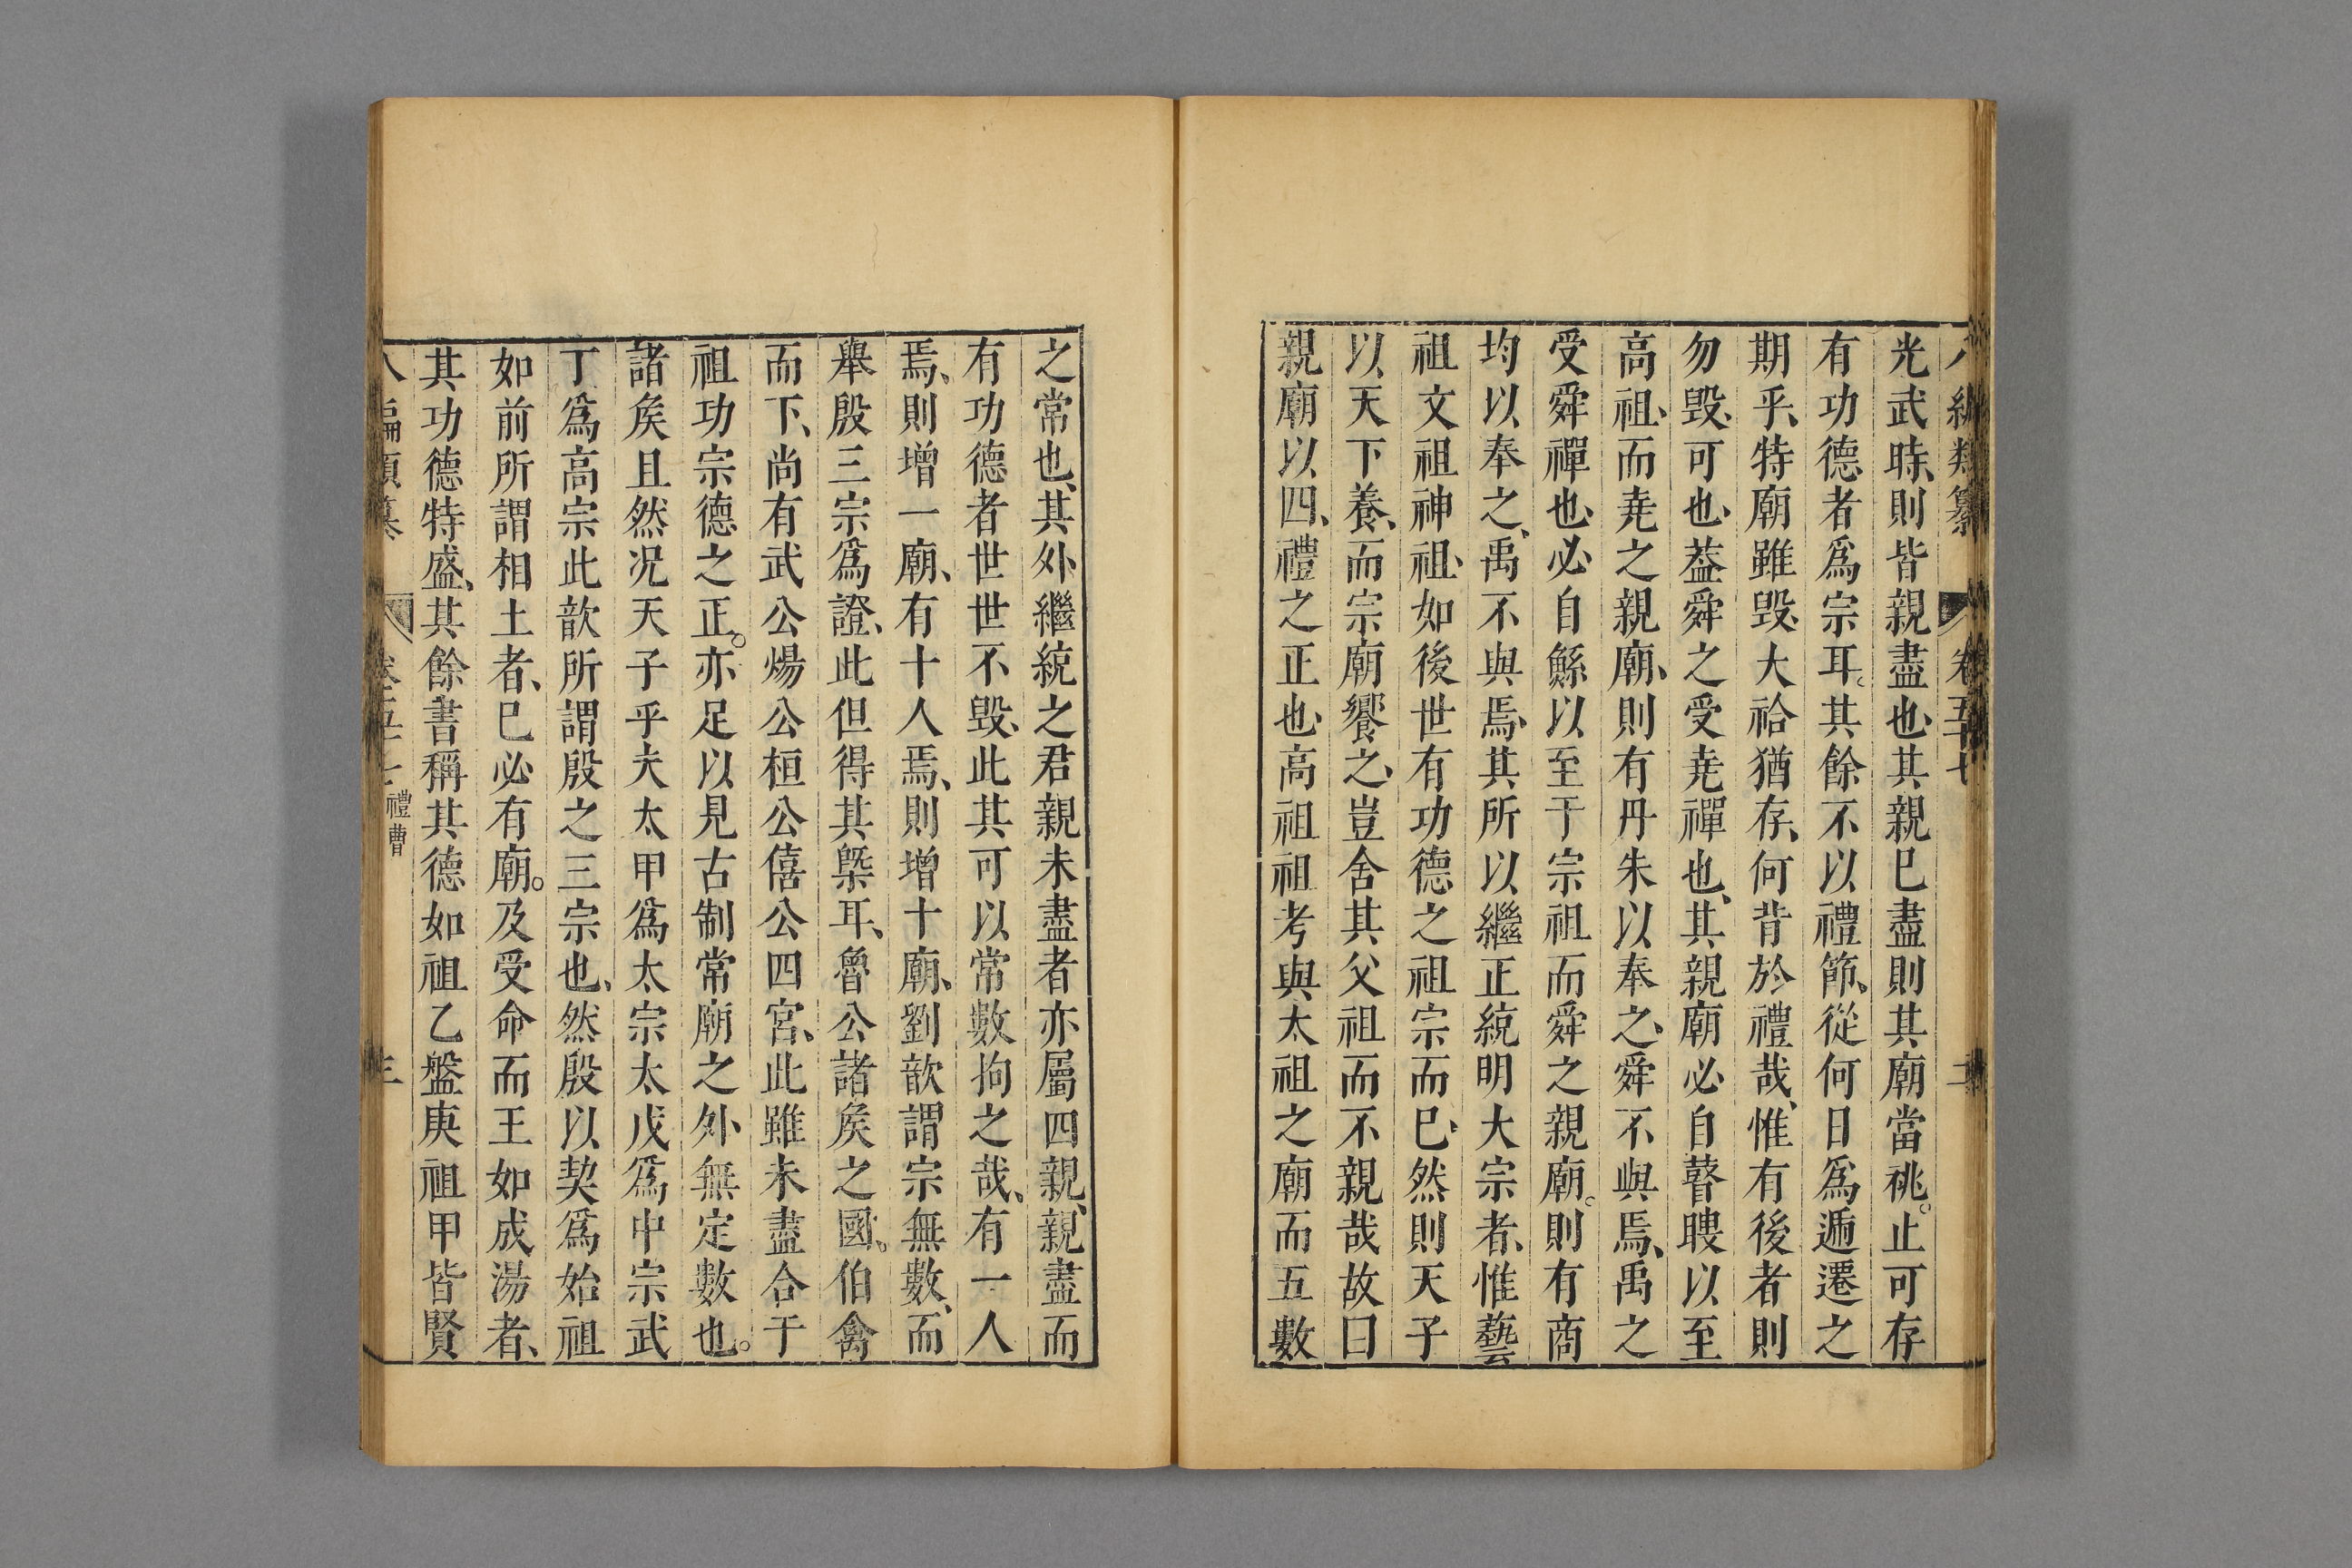 八編類纂 卷五十七 二
光武時、則皆親盡也、其親巳盡則其廟當祧。止可存
有功德者爲宗耳。其餘不以禮節、從何日爲遞遷之
期乎、特廟雖毀、大祫猶存、何背於禮哉、惟有後者則
勿毀、可也、葢舜之受堯禪也、其親廟必自瞽瞍以至
高祖、而堯之親廟、則有丹朱以奉之、舜不與焉、禹之
受舜禪也、必自鯀以至于宗祖而舜之親廟。則有商
均以奉之、禹不與焉、其所以繼正統明大宗者、惟藝
祖文祖神祖、如後世有功德之祖宗而巳、然則天子
以天下養、而宗廟饗之、豈舍其父祖而不親哉故曰
親廟以四、禮之正也、高祖祖考與太祖之廟而五數
之常也、其外繼統之君親未盡者亦屬四親、親盡而
有功德者世世不毀、此其可以常數拘之哉、有一人
焉、則增一廟、有十人焉、則增十廟、劉歆謂宗無數、而
舉殷三宗爲證、此但得其槩耳、魯公諸矦之國。伯禽
而下、尚有武公煬公桓公僖公四宮、此雖未盡合于
祖功宗德之正。亦足以見古制常廟之外無定數也。
諸矦且然况天子乎夫太甲爲太宗太戊爲中宗武
丁爲高宗此歆所謂殷之三宗也、然殷以契爲始祖
如前所謂相土者、巳必有廟。及受命而王如成湯者、
其功德特盛、其餘書稱其德如祖乙盤庚祖甲皆賢
八編類纂 卷五十七 禮曹 三